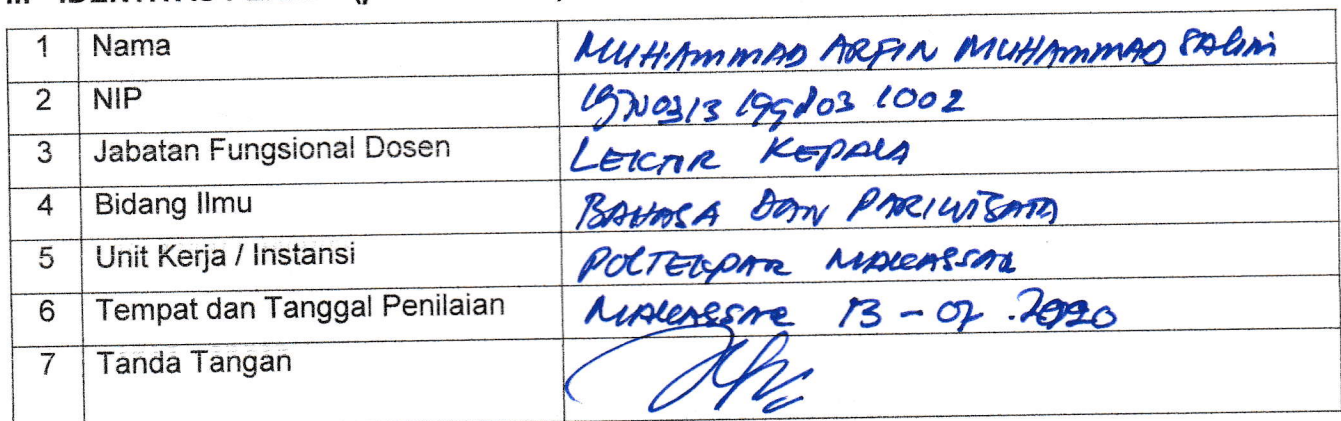 1 Nama MUHAMMAD ARFIN MUHAMMAD SALIM
2 NIP 1002
3 Jabatan Fungsional Dosen LEKTOR KEPALA
4 Bidang Ilmu BAHASA DAN PARIWISATA
5 Unit Kerja / Instansi POLTEKPAR MAKASSAR
6 Tempat dan Tanggal Penilaian MAKASSAR 13 -
7 Tanda Tangan